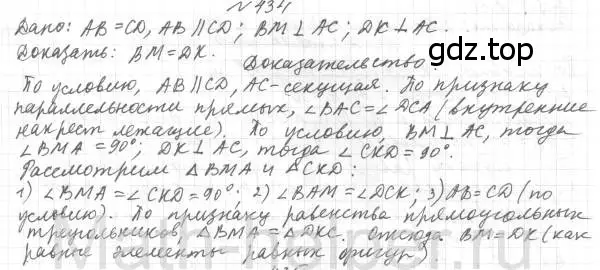 №434
Дано: AB=CD, AB ∥ CD; BM ⊥ AC; DK ⊥ AC.
Доказать: BM=DK.
gdz.top
Доказательство
По условию, AB∥CD, AC-секущая. По признаку
параллельности прямых, ∠BAC=∠DCA (внутренние
накрест лежащие). По условию, BM⊥AC, тогда
∠BMA=90°; DK⊥AC, тогда ∠CKD=90°.
Рассмотрим △BMA и △CKD:
1) ∠BMA=∠CKD=90°. 2) ∠BAM=∠DCK; 3) AB=CD (по
условию). По признаку равенства прямоугольных
треугольников △BMA=△DKC. отсюда BM=DK (как
равные элементы равных фигур).